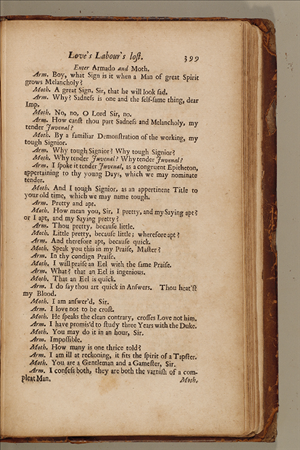 Love's Labour's lost. 399
Enter Armado and Moth.
Arm. Boy, what Sign is it when a Man of great Spirit
grows Melancholy?
Moth. A great Sign, Sir, that he will look sad.
Arm. Why? Sadness is one and the self-same thing, dear
Imp.
Moth. No, no, O Lord Sir, no.
Arm. How canst thou part Sadness and Melancholy, my
tender Juvenal?
Moth. By a familiar Demonstration of the working, my
tough Signior.
Arm. Why tough Signior? Why tough Signior?
Moth. Why tender Juvenal? Why tender Juvenal?
Arm. I spoke it tender Juvenal, as a congruent Epitheton,
appertaining to thy young Days, which we may nominate
tender.
Moth. And I tough Signior, as an appertinent Title to
your old time, which we may name tough.
Arm. Pretty and apt.
Moth. How mean you, Sir, I pretty, and my Saying apt?
or I apt, and my Saying pretty?
Arm. Thou pretty, because little.
Moth. Little pretty, because little; wherefore apt?
Arm. And therefore apt, because quick.
Moth. Speak you this in my Praise, Master?
Arm. In thy condign Praise.
Moth. I will praise an Eel with the same Praise.
Arm. What? that an Eel is ingenious.
Moth. That an Eel is quick.
Arm. I do say thou art quick in Answers. Thou heat'st
my Blood.
Moth. I am answer'd, Sir.
Arm. I love not to be crost.
Moth. He speaks the clean contrary, crosses Love not him.
Arm. I have promis'd to study three Years with the Duke.
Moth. You may do it in an hour, Sir.
Arm. Impossible.
Moth. How many is one thrice told?
Arm. I am ill at reckoning, it fits the spirit of a Tapster.
Moth. You are a Gentleman and a Gamester, Sir.
Arm. I confess both, they are both the varnish of a com-
pleat Man. Moth.